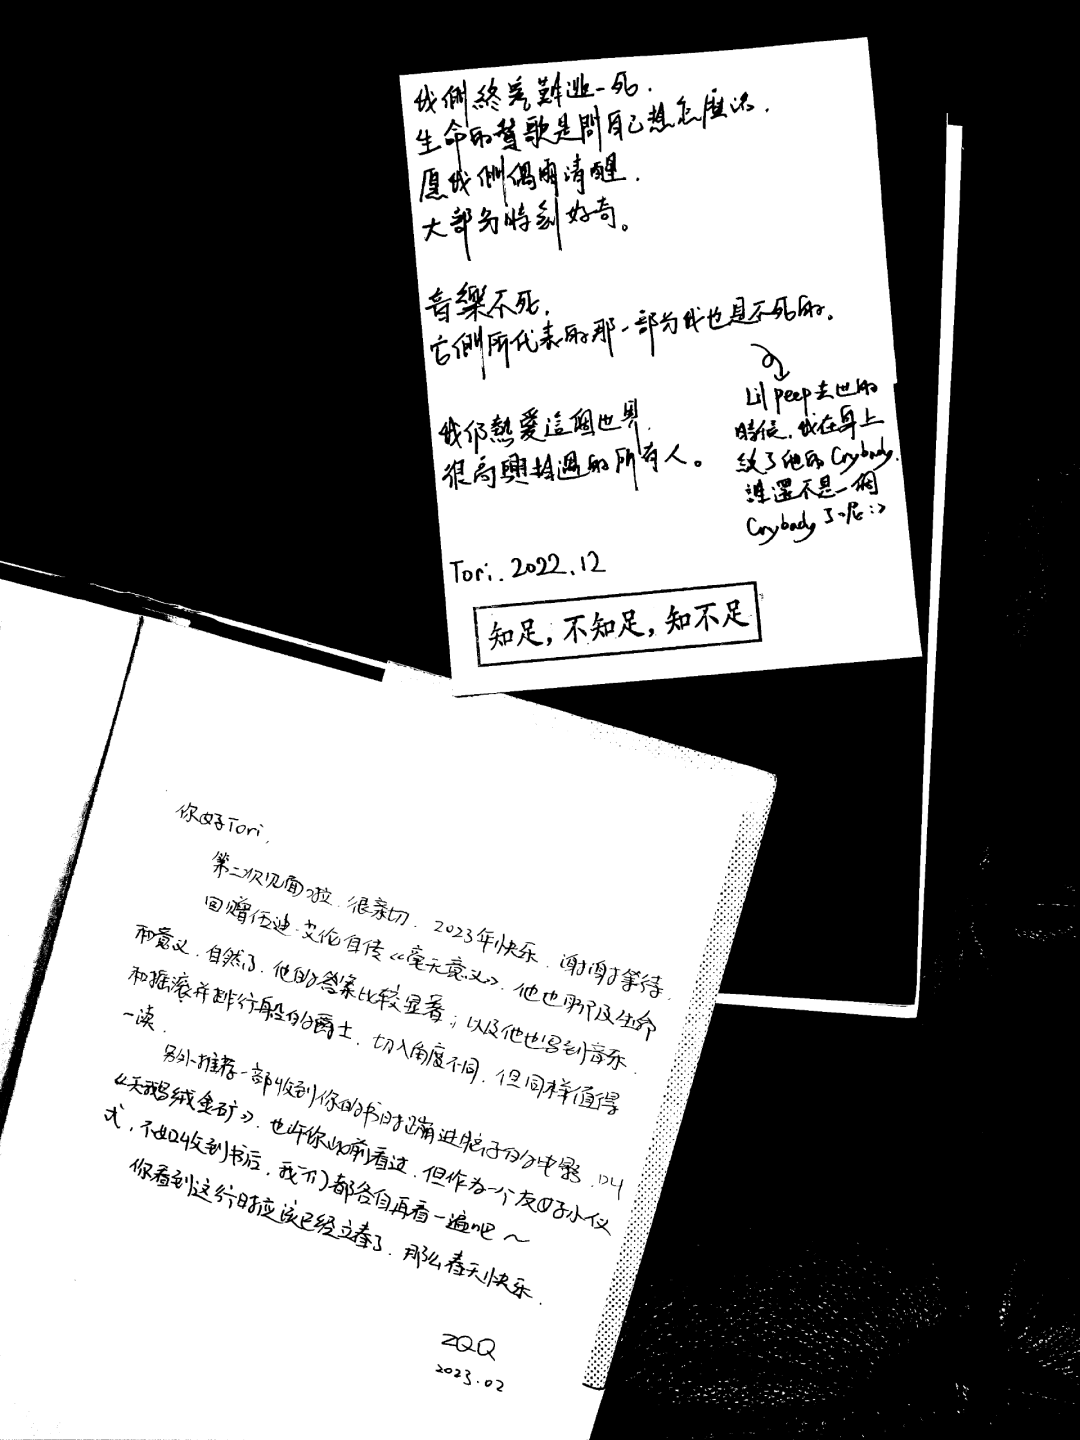 我們終究難逃一死.
生命的贊歌是問自己想怎麼活.
愿我們偶爾清醒.
大部分時刻好奇。
音樂不死.
它們所代表的那一部分我也是不死的。
Lil peep去世的
時候, 我在身上
紋了他的Crybaby.
誰還不是一個
Crybaby了呢:>
我们熱愛這個世界.
很高興 的所有人。
Tori. 2022.12
知足，不知足，知不足
你好Tori,
第二次见面啦. 很亲切. 2023年快乐. 谢谢等待.
回赠伍迪·艾伦自传《毫无意义》. 他也聊及生命
和意义. 自然了. 他的答案比较显著; 以及他也写到音乐.
和摇滚并排行 的爵士. 切入角度不同. 但同样值得
一读.
另外推荐一部收到你的书时蹦进脑子的电影.
《天鹅绒金矿》. 也许你以前看过. 但作为一个友好小仪
式, 不如收到书后, 我们都各自再看一遍吧~
你看到这行时应该已经立春了. 那么春天快乐.
ZQQ
2023.02